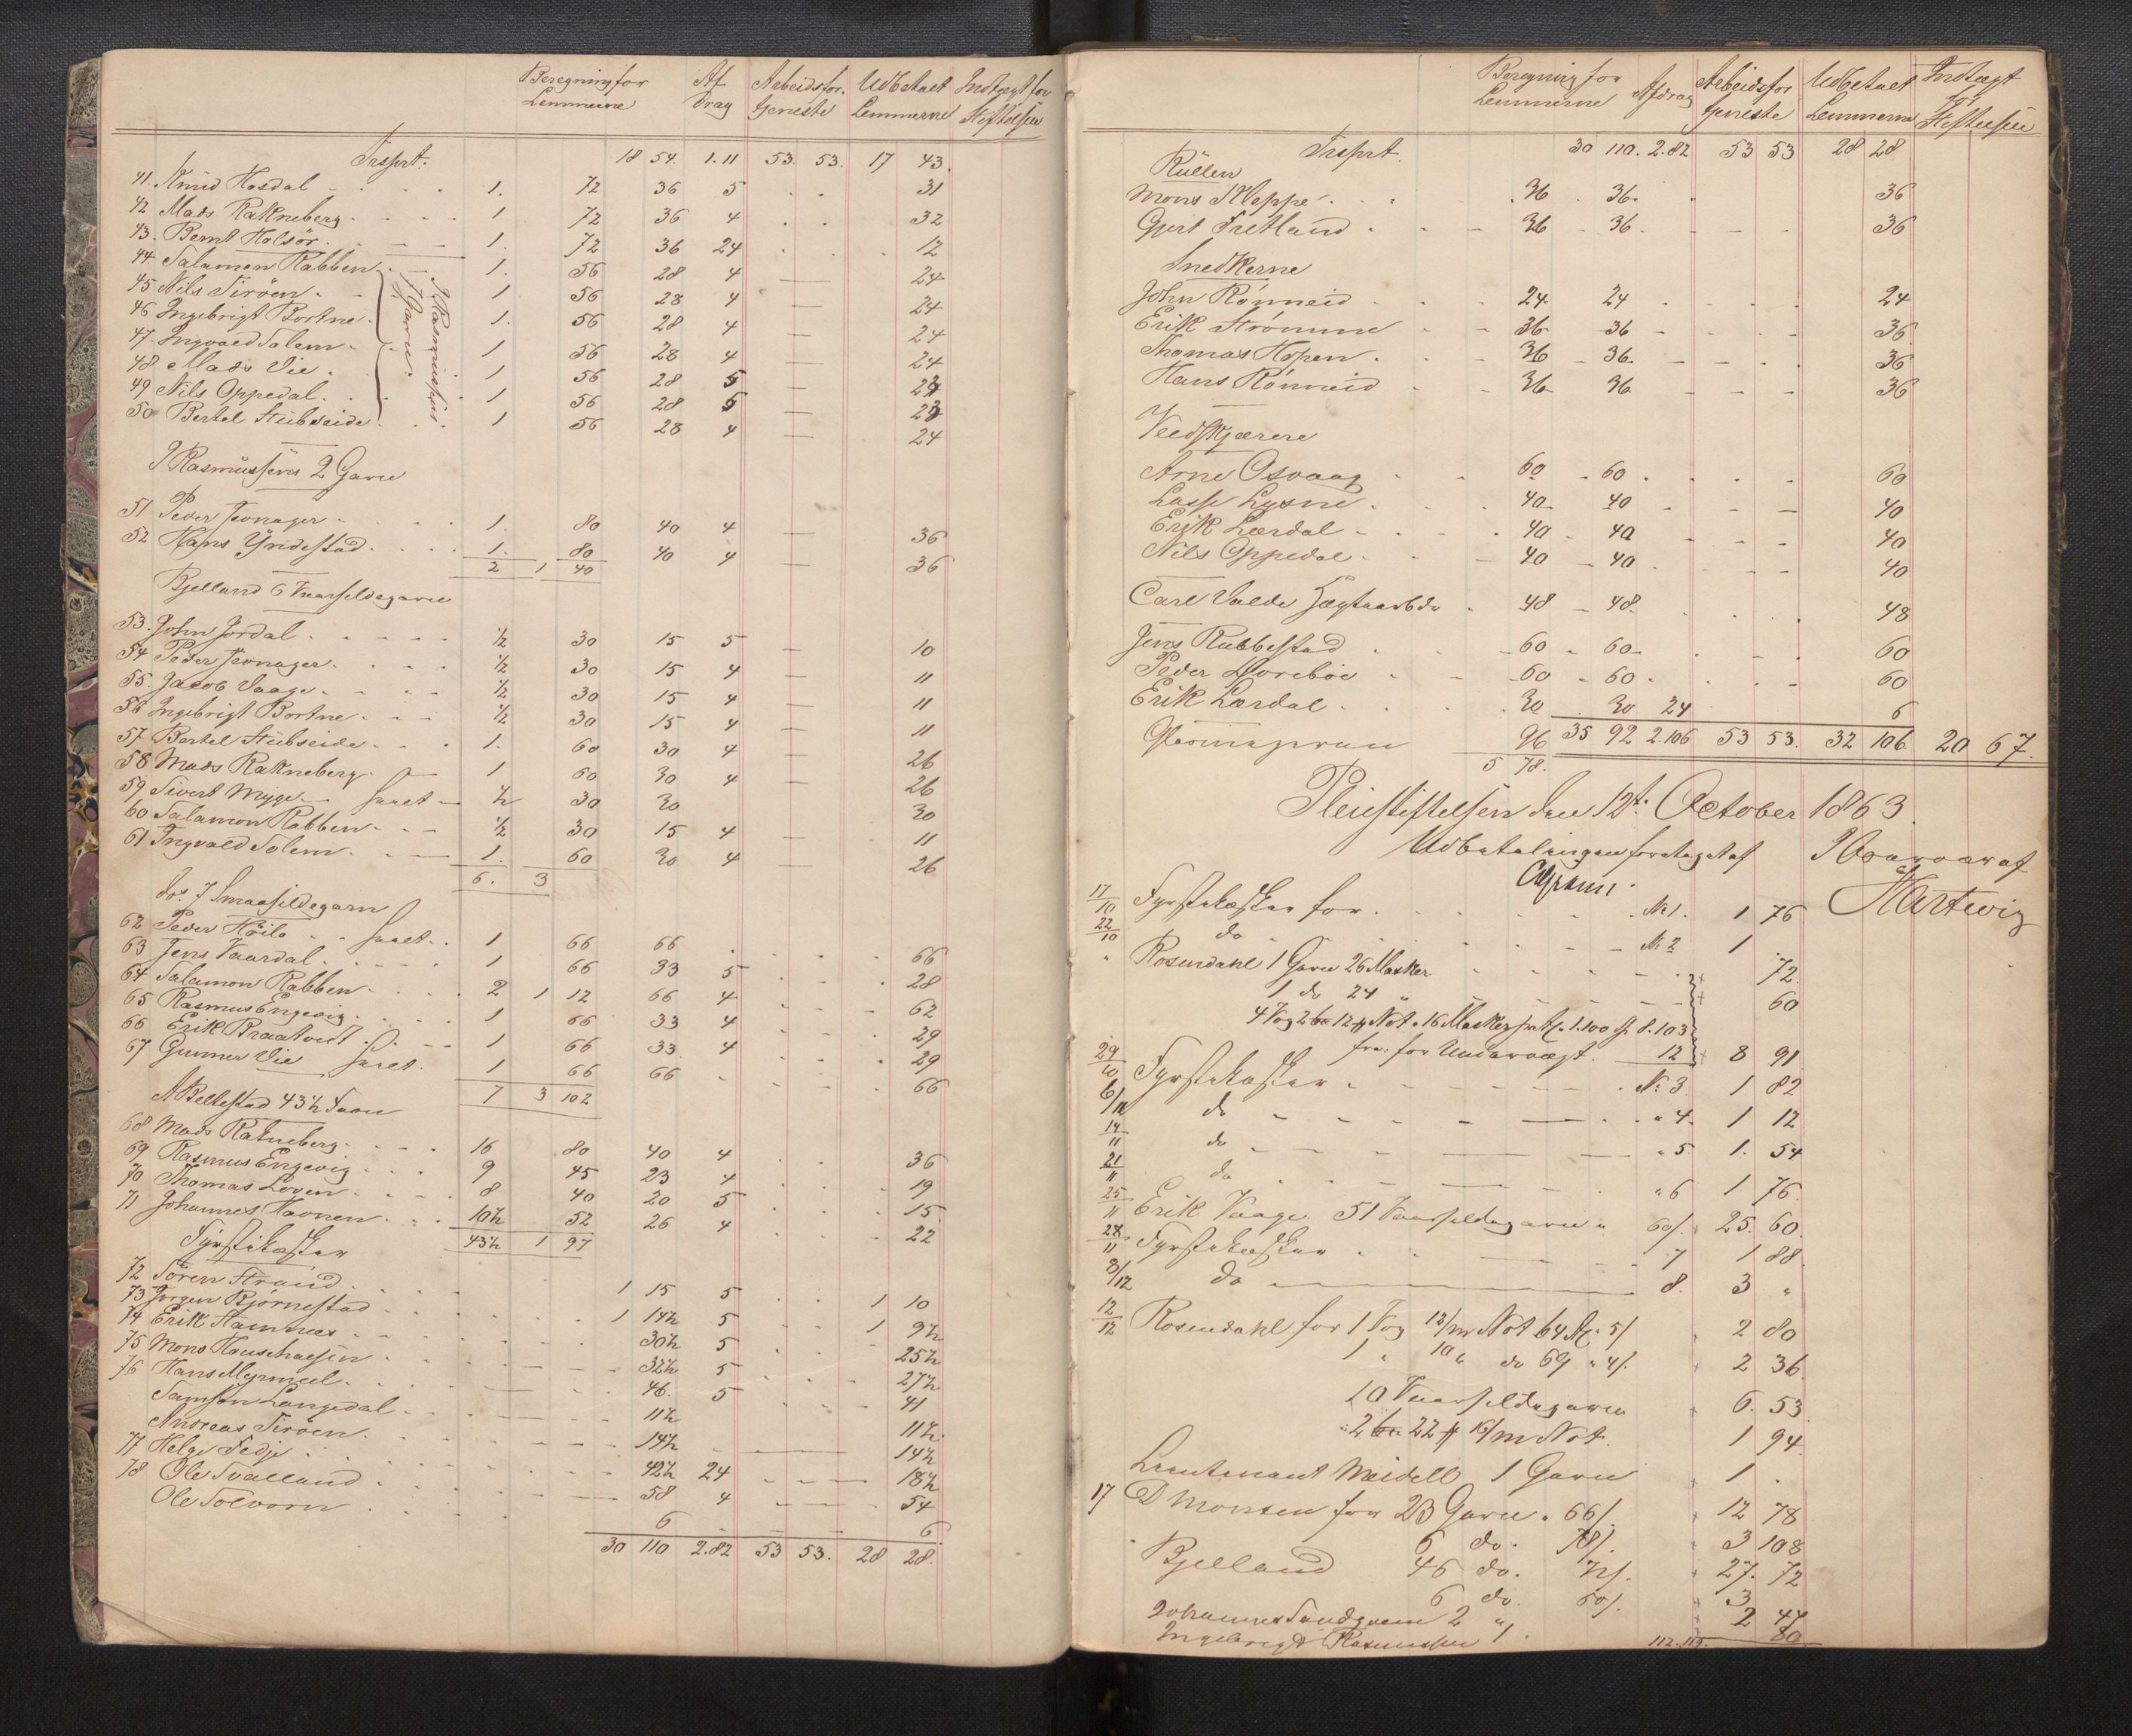 Beregning for Lemmerne Af Drag Arbeidsfor- tjeneste Udbetalt Lemmerne Indtægt for Stiftelsen
Trsprt. 18 54. 1.11 53. 53. 17 43.
41. Knud Hosdal 1. 72 36 5 31
42 Mads Rakneberg 1 72 36 4 32
43. Bernt Holsör 1. 72 36 24 12
44. Salamon Rabben 1. 56 28 4 24
45 Nils Tiröen 1 56 28 4 24
46 Ingebrigt Bortne 1. 56 28 4 24
47. Ingvald Solem 1 56 28 4 24
48 Mads Vie 1 56 28 5 23
49 Nils Oppedal 1 56 28 5 23
50 Bertel Stubseide 1 56 28 4 24
I Rasmussens 7 Garn.
I Rasmussens 2 Garn
51 Peder Jevnager 1. 80 40 4 36
52 Hans Yndestad 1. 80 40 4 36
2 1 40
Bjelland 6 Vaarsildegarn
53. John Jordal ½ 30 15 5 10
54 Peder Jevnager ½ 30 15 4 11
55. Jacob Vaage ½ 30 15 4 11
56 Ingebrigt Bortne ½ 30 15 4 11
57 Bertel Stubseide 1. 60 30 4 26
58 Mads Rakneberg 1 60 30 4 26
59 Sivert Myge ½ 30 30 30
60 Salamon Rabben ½ 30 15 4 11
61 Ingvald Solem 1. 60 30 4 26
6. 3
do. 7 Smaasildegarn
62 Peder Höilo 1 66 66 66
63 Jens Vaardal 1 66 33 5 28
64 Salamon Rabben 2 1 12 66 4 62
65 Rasmus Engevig 1 66 33 4 29
66 Erik Braatvedt 1 66 33 4 29
67 Gunner Vie 1 66 66 66
7 3 102
A Bellestad 43½ Favn
68 Mads Rakneberg 16 80 40 4 36
69 Rasmus Engevig 9 45 23 4 19
70 Thomas Loven 8 40 20 5 15.
71 Johannes Havnen 10½ 52 26 4 22
43½ 1 97
Fyrstikæsker
72 Sören Strand 1 15 5 1 10
73 Jörgen Bjørnestad 1 14½ 5 1 9½
74 Erik Hamnes 30½ 5 25½
75 Mons 32½ 5 27½
76 Hans Myrmel 46. 5 41
Samson Langedal 11½ 11½.
Andreas Tiröen 14½ 14½
77 Helge Fedje 42½ 24 18½
78 Ole Svalland 58 4 54
Ole Solvorn 6 6
30 110 2.82 53 53. 28 28.
Beregning for Lemmerne Afdrag Arbeidsfor tjeneste Udbetalt Lemmerne Indtægt for Stiftelsen
Trsprt. 30 110. 2.82 53 53 28 28
Rüllen
Mons Kleppe 36 36. 36
Gjert Fretland 36 36. 36
Snedkerne
John Rönneid 24 24 24
Erik Strömme 36 36 36
Thomas Hopen 36 36. 36
Hans Rönneid 36 36. 36
Vedskjærere
Arne Osvaag 60 60 60
Lasse Lysne 40 40 40
Erik Lærdal 40 40 40
Nils Oppedal 40 40 40
Carl Valde 48 48. 48
Jens Rubbestad 60 60 60
Peder Dorebøe 60 60 60
Erik Lærdal 30 30 24 6
96 35 92 2.106 53 53. 32 106 20 67.
5 78.
Pleiestiftelsen den 12te October 1863.
Udbetalingen foretaget af Nærvær af
Hartwig
17/10 Fyrstikæsker for No 1. 1 76
22/10 do No 2 1
" Rosendahl 1 Garn 26 Masker 72
1 do 24 " 60
4 Vog 2 12 Not 16 Masker 1.100 8.103
for Undervægt. 12 8 91
29/10 Fyrstikæsker No 3 1 82
6/11 do " 4. 1 12
14/11 do " 5 1. 54
21/11 do " 6 1 76.
25/11 Erik Vaage 51 Vaarsildegarn 60/. 25. 60.
28/11 Fyrstikæsker 7 1 88.
8/12 do 8. 3 "
12/12 Rosendahl for 1 Vog 12/m Not 64 5/ 2 80
1 " 10 " do 69 " 4/. 2 36.
10 Vaarsildegarn 6. 53
2 22 16/m Not. 1 94.
Lieutenant Meidell 1 Garn 1 .
17 D Monsen for 23 Garn " 66/. 12 78
6 do. 78/. 3 108
Bjelland 46 do. 72/. 27. 72
6 do. 60/. 3
Johannes 2 " 2 47
Ingebrigt Rasmussen 1. 80
112.119.